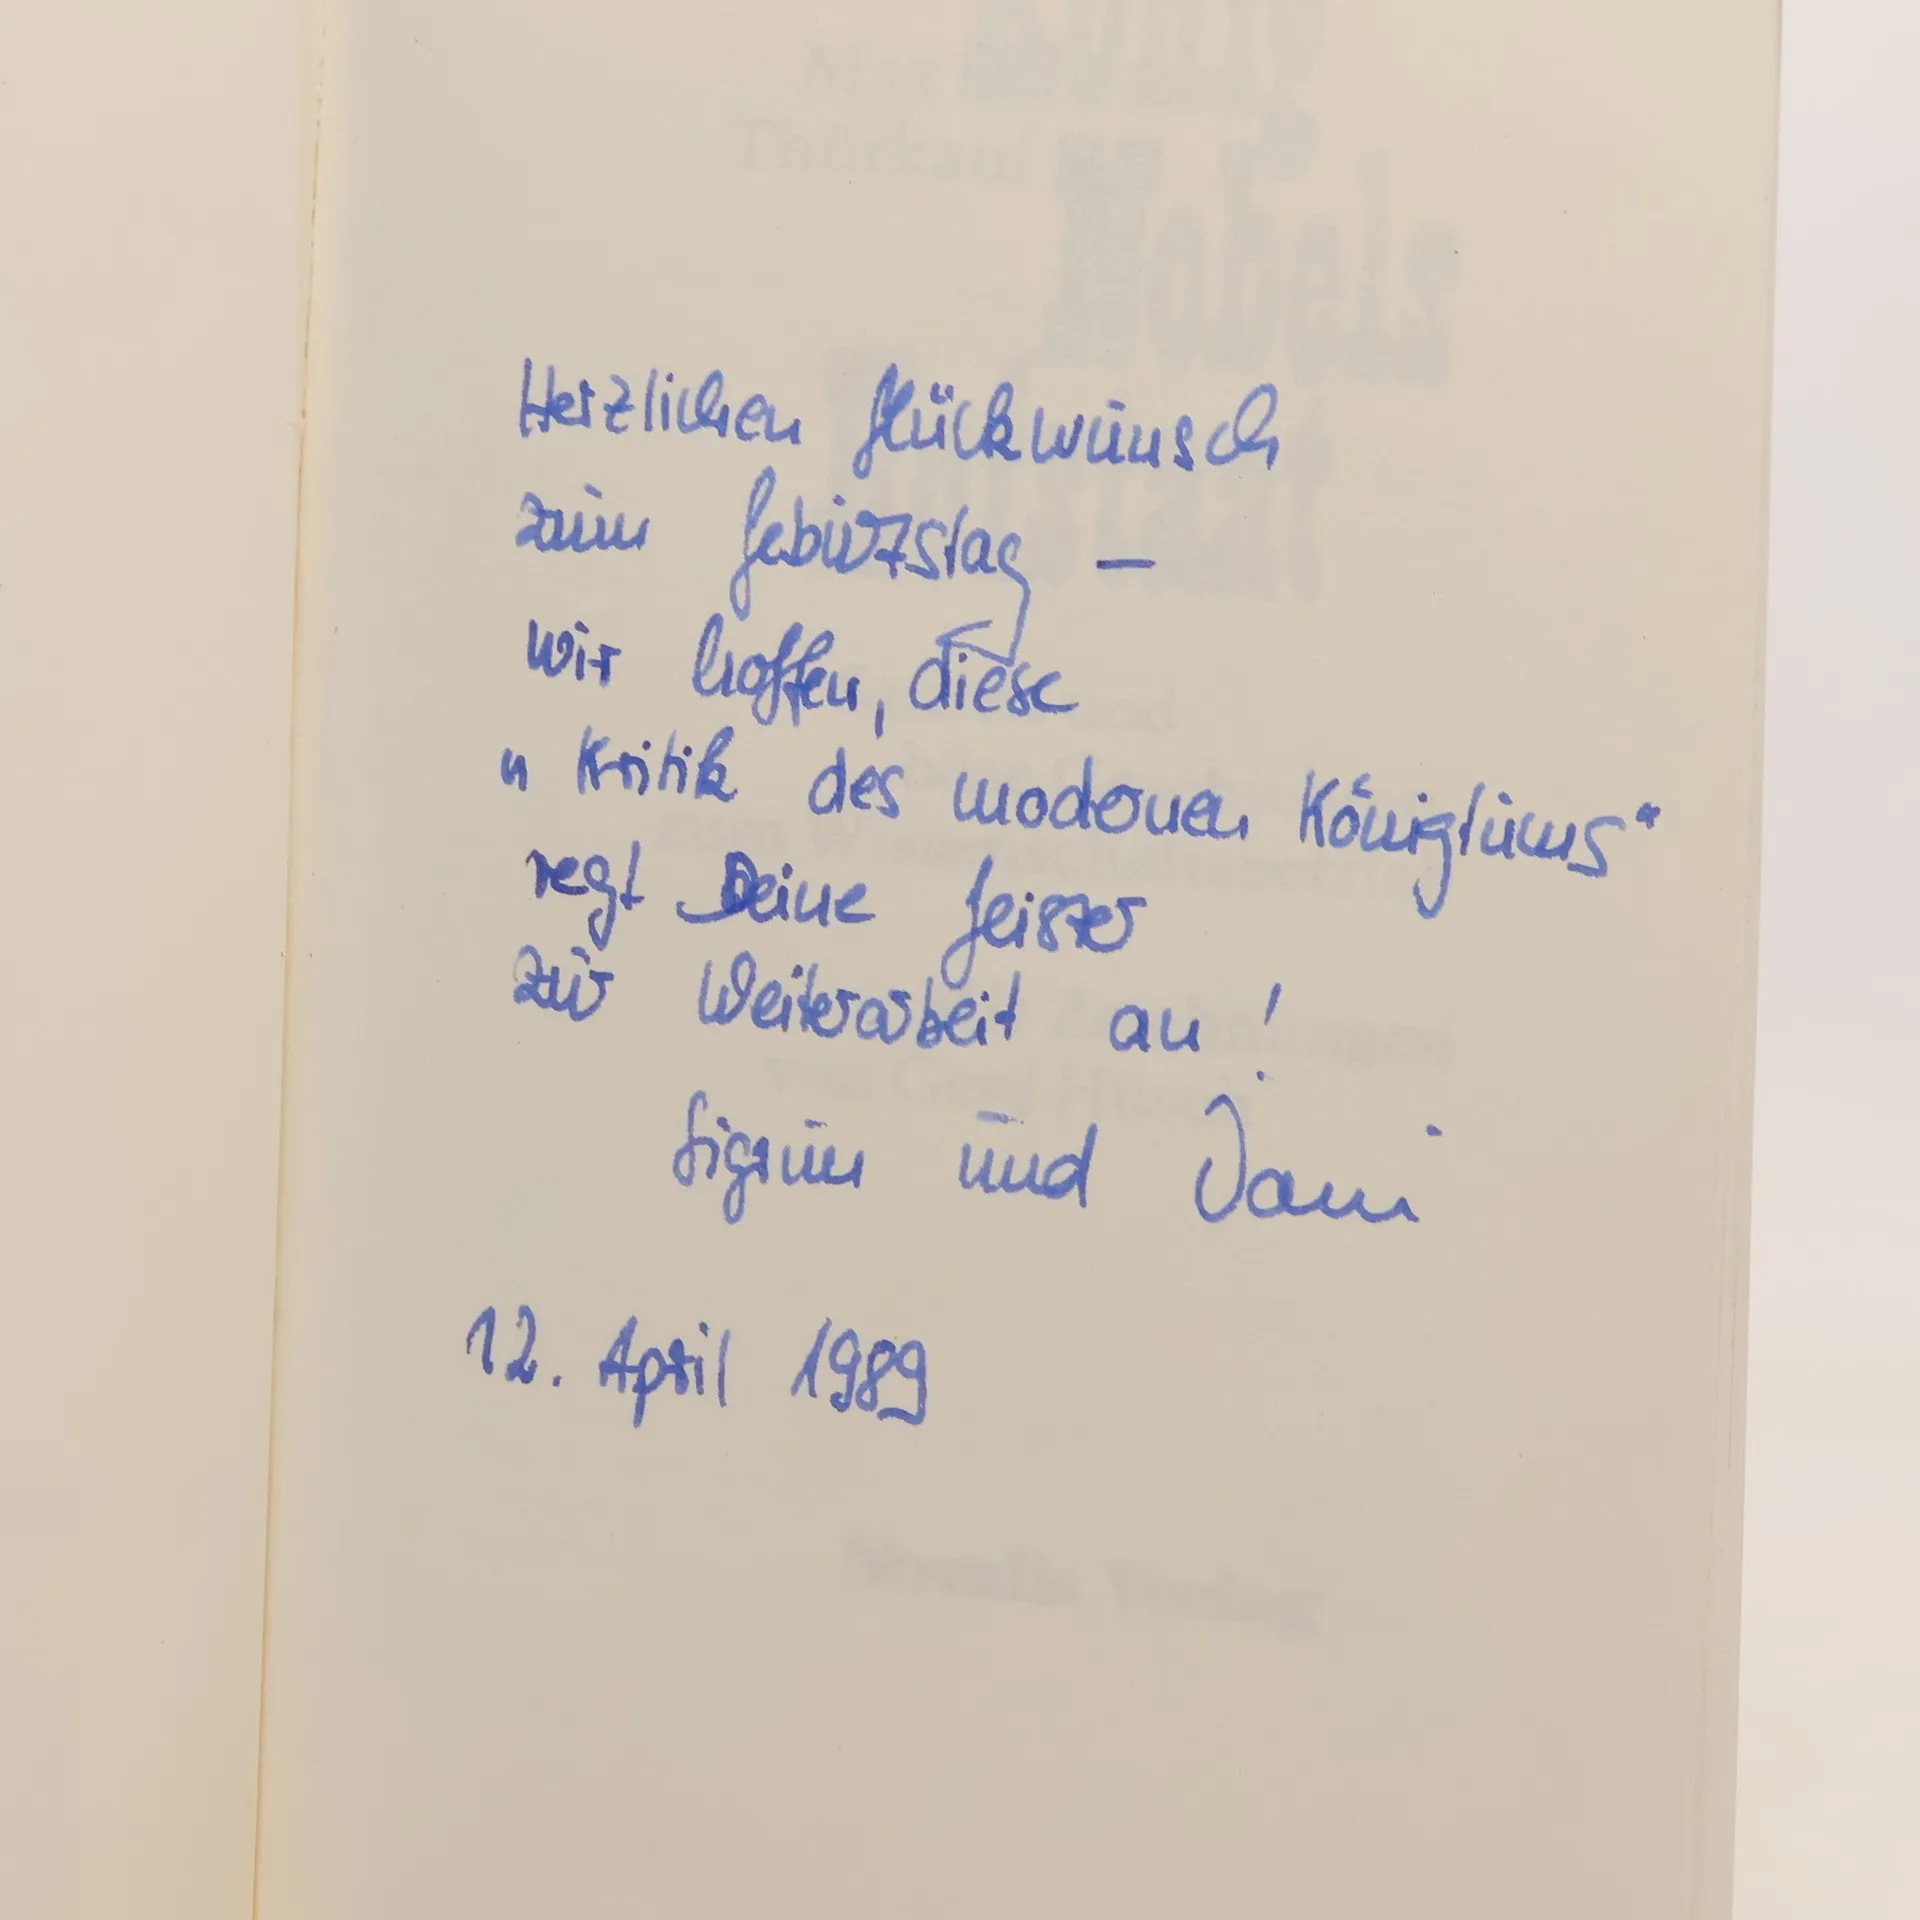 Max König
Thürkauf Nobels
Hofstaat
und
zum
Zeichnungen
von
Herzlichen Glückwunsch
zum Geburtstag –
wir hoffen, diese
"Kritik des modernen Königtums"
regt Deine Geister
zur Weiterarbeit an!
Sigrun und Dani
12. April 1989
Novalis Verlag